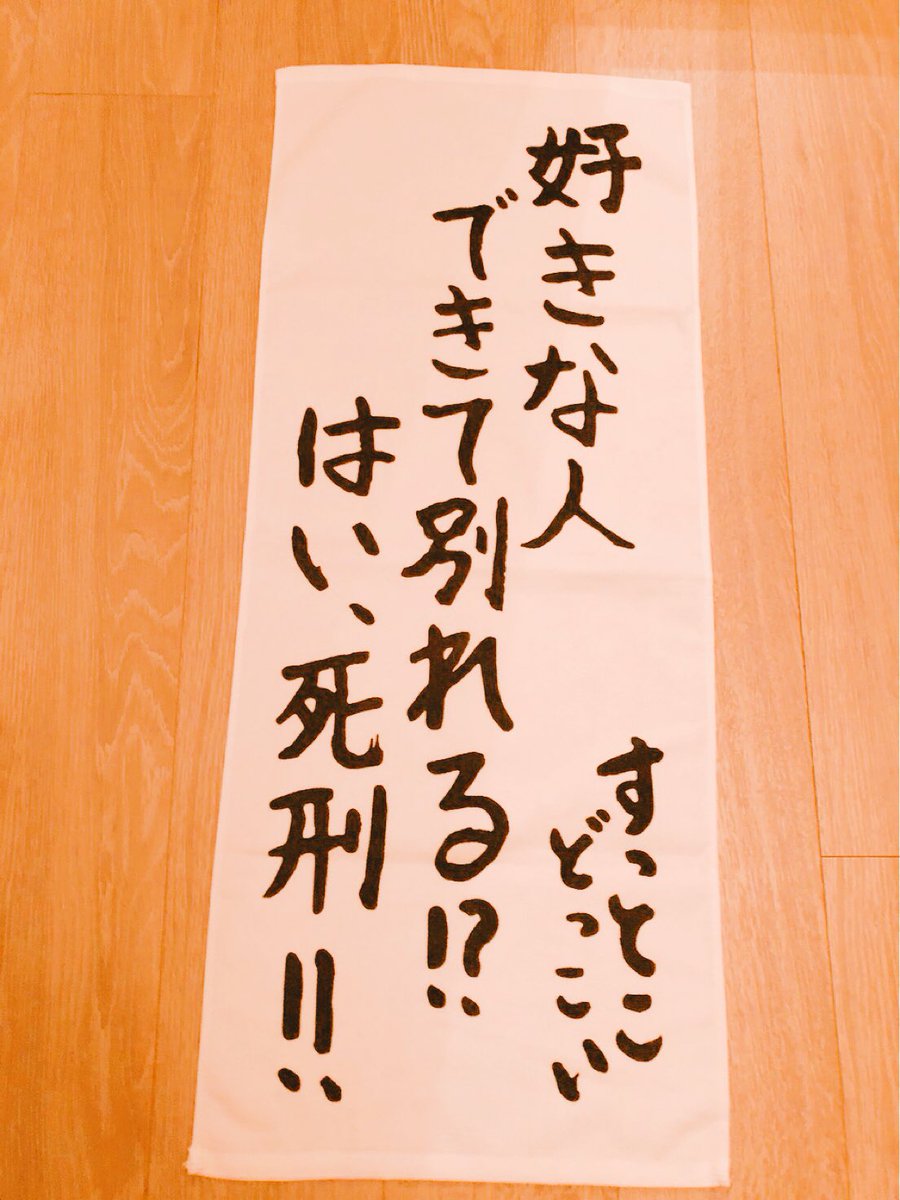 好きな人
できて別れる!?
はい、死刑!!
すっとこ
どっこい